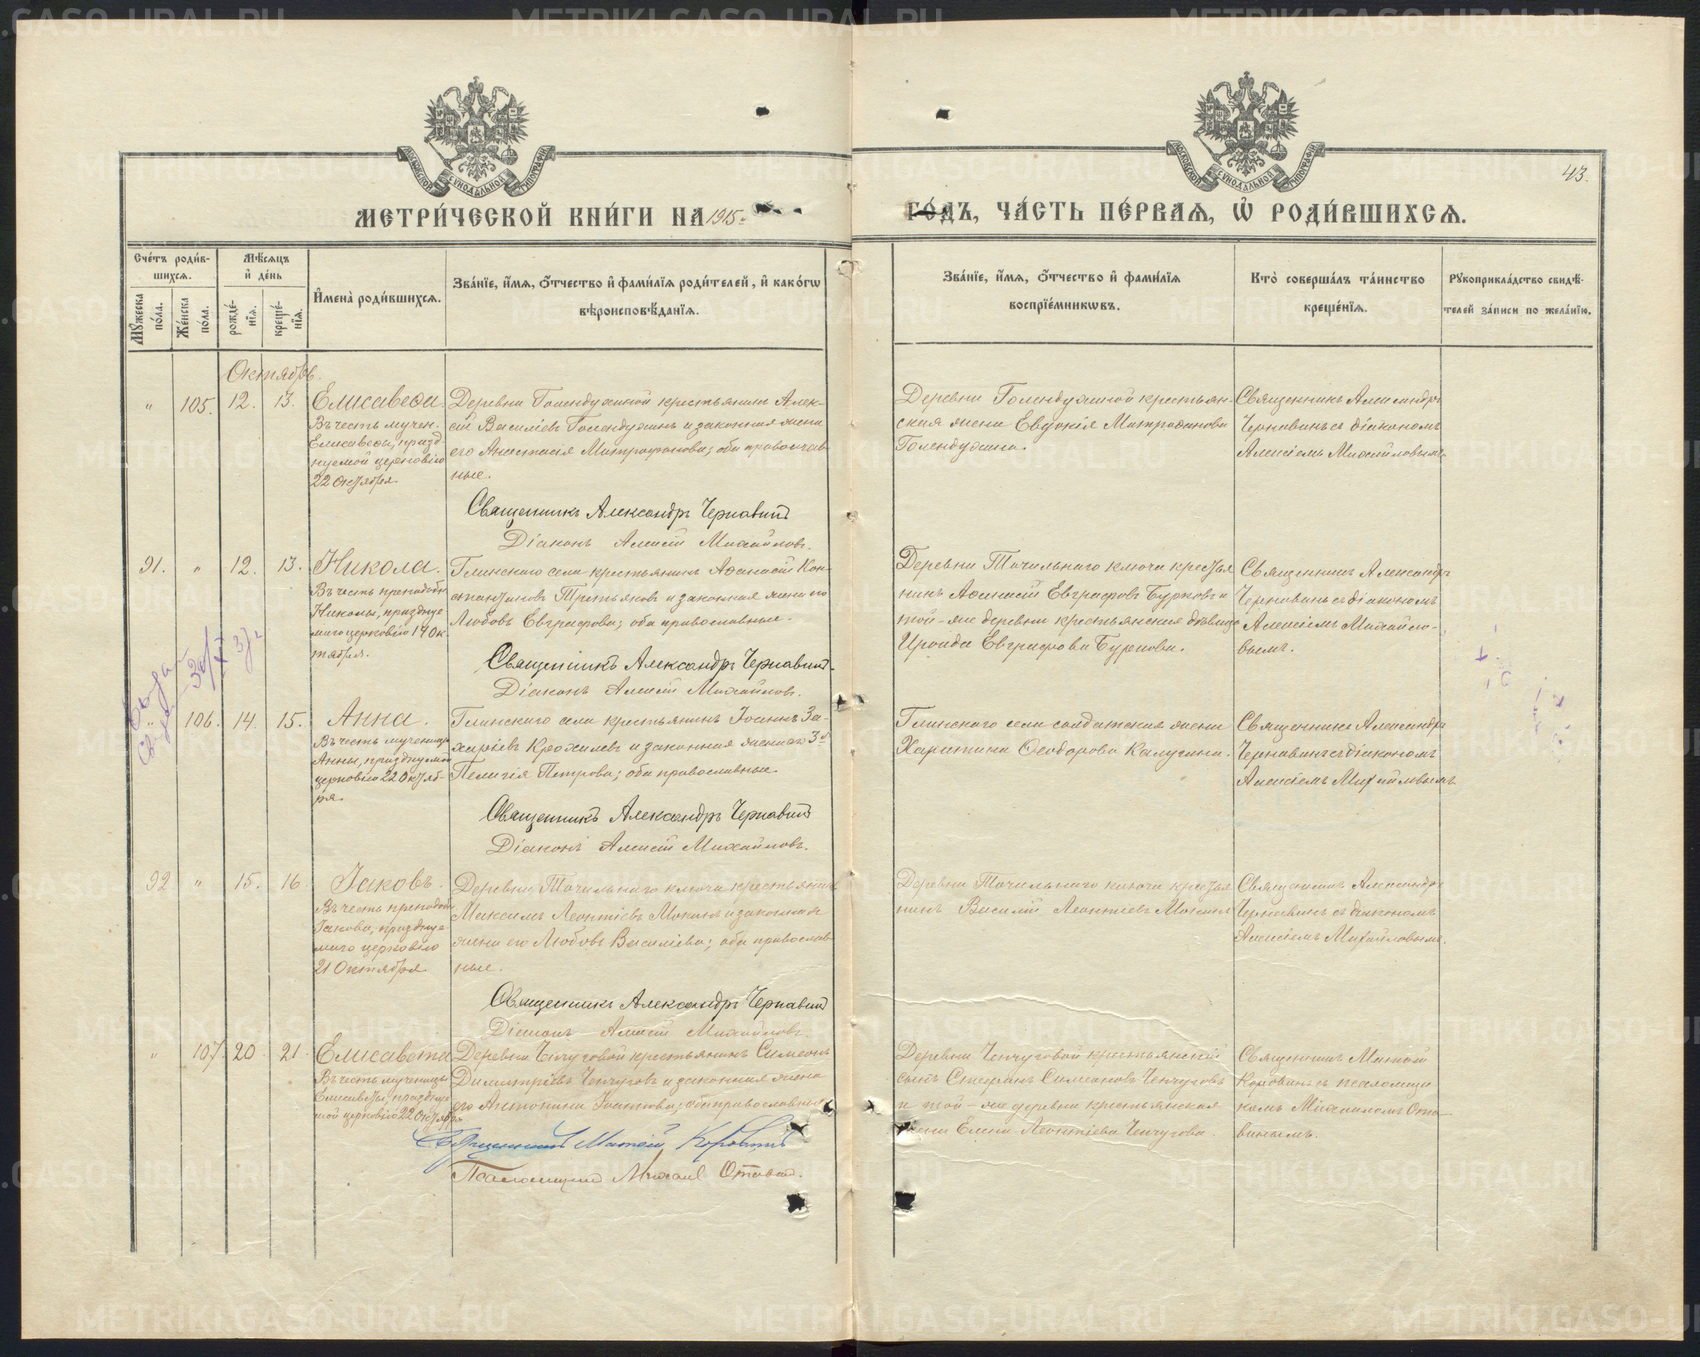 43.
МЕТРИ́ЧЕСКОЙ КНИ́ГИ НА 1915 ГО́ДЪ, ЧА́СТЬ ПЕ́РВАЯ, Ѡ҆ РОДИ́ВШИХСЯ.
Сче́тъ роди́в-
шихся.
Мѣ́сяцъ
и҆ де́нь
Мꙋ́жеска по́ла.
Же́нска по́ла.
рожде́-
нїя.
креще́-
нїя.
И҆мена̀ роди́вшихся.
Зва́нїе, и҆́мя, ѻ҆́тчество и҆ фами́лїя роди́телей, и҆ како́гѡ
вѣроисповѣ́данїя.
Зва́нїе, и҆́мя, ѻ҆́тчество и҆ фами́лїя
воспрїе́мникѡвъ.
Кто̀ соверша́лъ та́инство
креще́нїя.
Рꙋкоприкла́дство свидѣ́-
телей за́писи по жела́нїю.
Октябрь.
" 105. 12. 13. Елисавеѳа.
Въ честь мучен.
Елисавеѳы, празд
нуемой церковію
22 Октября.
Деревни Голендухиной крестьянинъ Алек-
сій Василіевъ Голендухинъ и законная жена
его Анастасія Митрофанова; оба православ-
ные.
Священникъ Александръ Чернавинъ
Діаконъ Алексій Михайловъ.
Деревни Голендухиной крестьян-
ская жена Евдокія Митрофанова
Голендухина.
Священникъ Александръ
Чернавинъ съ діакономъ
Алексіемъ Михайловымъ.
91. " 12. 13. Никола.
Въ честь преподобн
Николы, празднуе
маго церковію 14 Ок
тября.
Глинскаго села крестьянинъ Аѳанасій Кон-
стантиновъ Третьяковъ и законная жена его
Любовь Евграфова; оба православные.
Священникъ Александръ Чернавинъ.
Діаконъ Алексій Михайловъ.
Деревни Точильнаго ключа крестья
нинъ Аѳанасій Евграфовъ Бурковъ и
той-же деревни крестьянская дѣвица
Ираида Евграфова Буркова.
Священникъ Александръ
Чернавинъ съ діакономъ
Алексіемъ Михайло-
вымъ.
106. 14. 15. Анна.
Въ честь мученицы
Анны, празднуемой
церковію 22 Октяб-
ря.
Глинскаго села крестьянинъ Іоаннъ За-
харіевъ Крохалевъ и законная жена его
Пелагія Петрова; оба православные.
Священникъ Александръ Чернавинъ
Діаконъ Алексій Михайловъ.
Глинскаго села солдатская жена
Харитина Ѳеодорова Калугина.
Священникъ Александръ
Чернавинъ съ діакономъ
Алексіемъ Михайловымъ
92 " 15. 16. Іаковъ.
Въ честь преподоб
Іакова, празднуе
маго церковію
21 Октября.
Деревни Точильнаго ключа крестьянинъ
Максимъ Леонтіевъ Мокинъ и законная
жена его Любовь Василіева; оба православ
ные.
Священникъ Александръ Чернавинъ
Діаконъ Алексій Михайловъ
Деревни Точильнаго ключа крестья
нинъ Василій Леонтіевъ Мокинъ
Священникъ Александръ
Чернавинъ съ діакономъ
Алексіемъ Михайловымъ.
" 107. 20. 21. Елисавета
Въ честь мученицы
Елисаветы, празднуе
мой церковію 22 Октября
Деревни Ченчуговой крестьянинъ Симеонъ
Димитріевъ Ченчуговъ и законная жена
его Антонина Іоаннова; оба православные
Священникъ Матѳій Коровинъ
Псаломщикъ Михаилъ Отавинъ.
Деревни Ченчуговой крестьянскій
сынъ Стефанъ Симеоновъ Ченчуговъ
и той-же деревни крестьянская
жена Елена Леонтіева Ченчугова.
Священникъ Матѳій
Коровинъ съ псаломщи
комъ Михаиломъ Ота-
винымъ.
METRIKI.GASO-URAL.RU